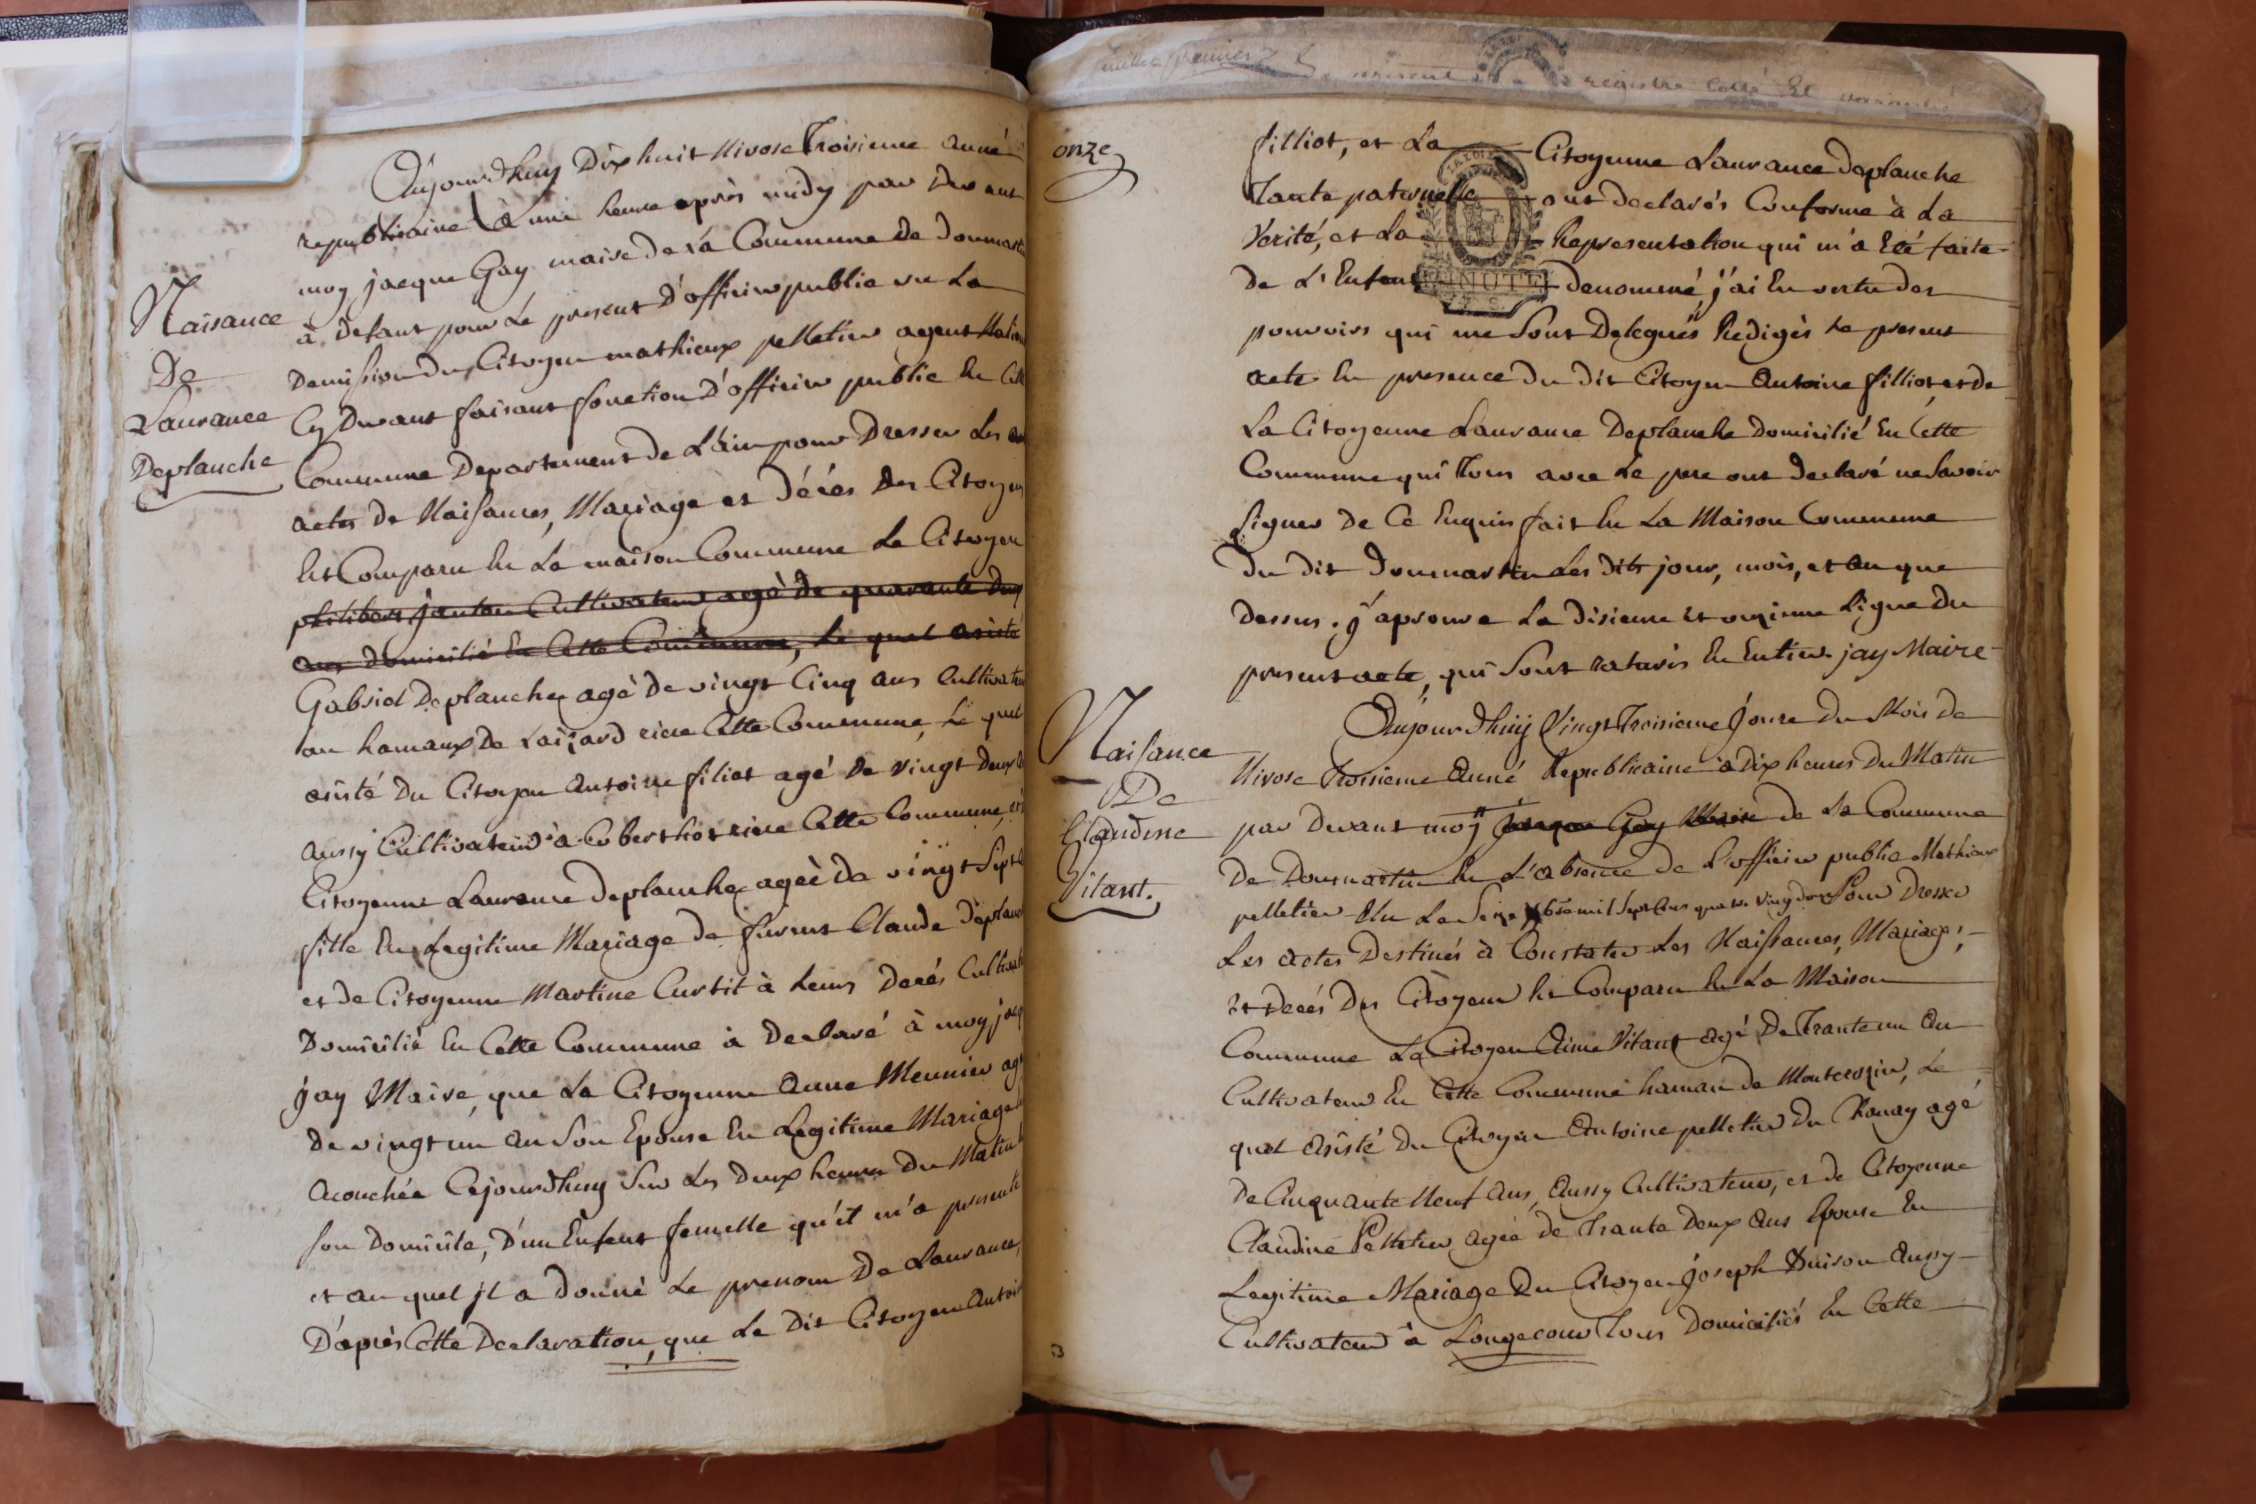 Aujourdhuy Dix huit Nivose Troisieme anné
republicaine à une heure après midy par devant
moy jacque Gay maire de la Commune de Donmartin
à defaut pour le present d'officier public vu La
Demission du Citoyen mathieux pelletier agent
Cy Devant faisant fonction d'officier public En
Commune Departement de L'ain pour Dresser Les
actes de Naissances, Mariage et décés des Citoyens
Est Comparu En La maison Commune Le Citoyen
philibert janton Cultivateur agé de quarante deux
ans domicilié En Cette Commune, Le quel asisté
Gabriel Deplanche agé de vingt Cinq ans Cultivateur
au hamaux de Laizard riere Cette Commune, Le quel
asisté du Citoyen Antoine filiot agé de vingt deux
aussy Cultivateur à Coberthot riere Cette Commune, et
Citoyenne Laurance Deplanche agée de vingt Sept
fille En Legitime Mariage de furent Claude Deplanche
et de Citoyenne Martine Curtit à Leurs décés Cultivateurs
Domicilié En Cette Commune à Declaré à moy
Gay Maire, que La Citoyenne Anne Meunier agé
de vingt un an Son Epouse En Legitime Mariage
Acouchée Cejourdhuy Sur Les deux heures du Matin
son domicile, D'un Enfant femelle qu'il m'a presenté
et au quel jl a donné Le prenom De Laurance,
D'après Cette Declaration, que Le dit Citoyen Antoine
Naisance
De
Laurance
Deplanche
registre Cotté Et
onze
filliot, et La Citoyenne Laurance Deplanche
Tante paternelle ont declarés Conforme à La
Verité, et La Representation qui m'a Eté faite
de L'Enfant denommé, j'ai En vertu des
pouvoirs qui me Sont Delegués Redigés Le present
acte En presence du dit Citoyen Antoine filliot, et de
La Citoyenne Laurance Deplanche Domicilié En Cette
Commune qui Tous avec Le pere ont declaré ne Savoir
Signer de Ce Enquis fait En La Maison Commune
du dit Donmartin Les dits jour, mois, et an que
dessus. j'aprouve La disieme et onzieme Ligne du
present acte, qui Sont raturés En Entier. jay Maire
Aujourdhuy Vingt Troisieme Joure du Mois de
Nivose Troisieme Anné Republicaine à Dix heures du Matin
par devant moy Jacque Gay Maire de La Commune
De Donmartin En L'absence de L'officier public Mathieux
pelletier Elu Le Seize Xbre mil Sept Cens quatre vingt douze Pour Dresser
Les actes Destinés à Constater Les Naissances, Mariages,
et decés Des Citoyens Est Comparu En La Maison
Commune Le Citoyen Aime Vitant agé De Trante un An
Cultivateur En Cette Commune hamau de Montcrozier, Le
quel asisté du Citoyen Antoine pelletier Du Chanay agé
de Cinquante Neuf ans, Aussy Cultivateur, et de Citoyenne
Claudine Pelletier agée de Trante Deux ans Epouse En
Legitime Mariage Du Citoyen Joseph Buison Aussy
Cultivateur à Longecour Tous Domiciliés En Cette
Naisance
De
Claudine
Vitant.